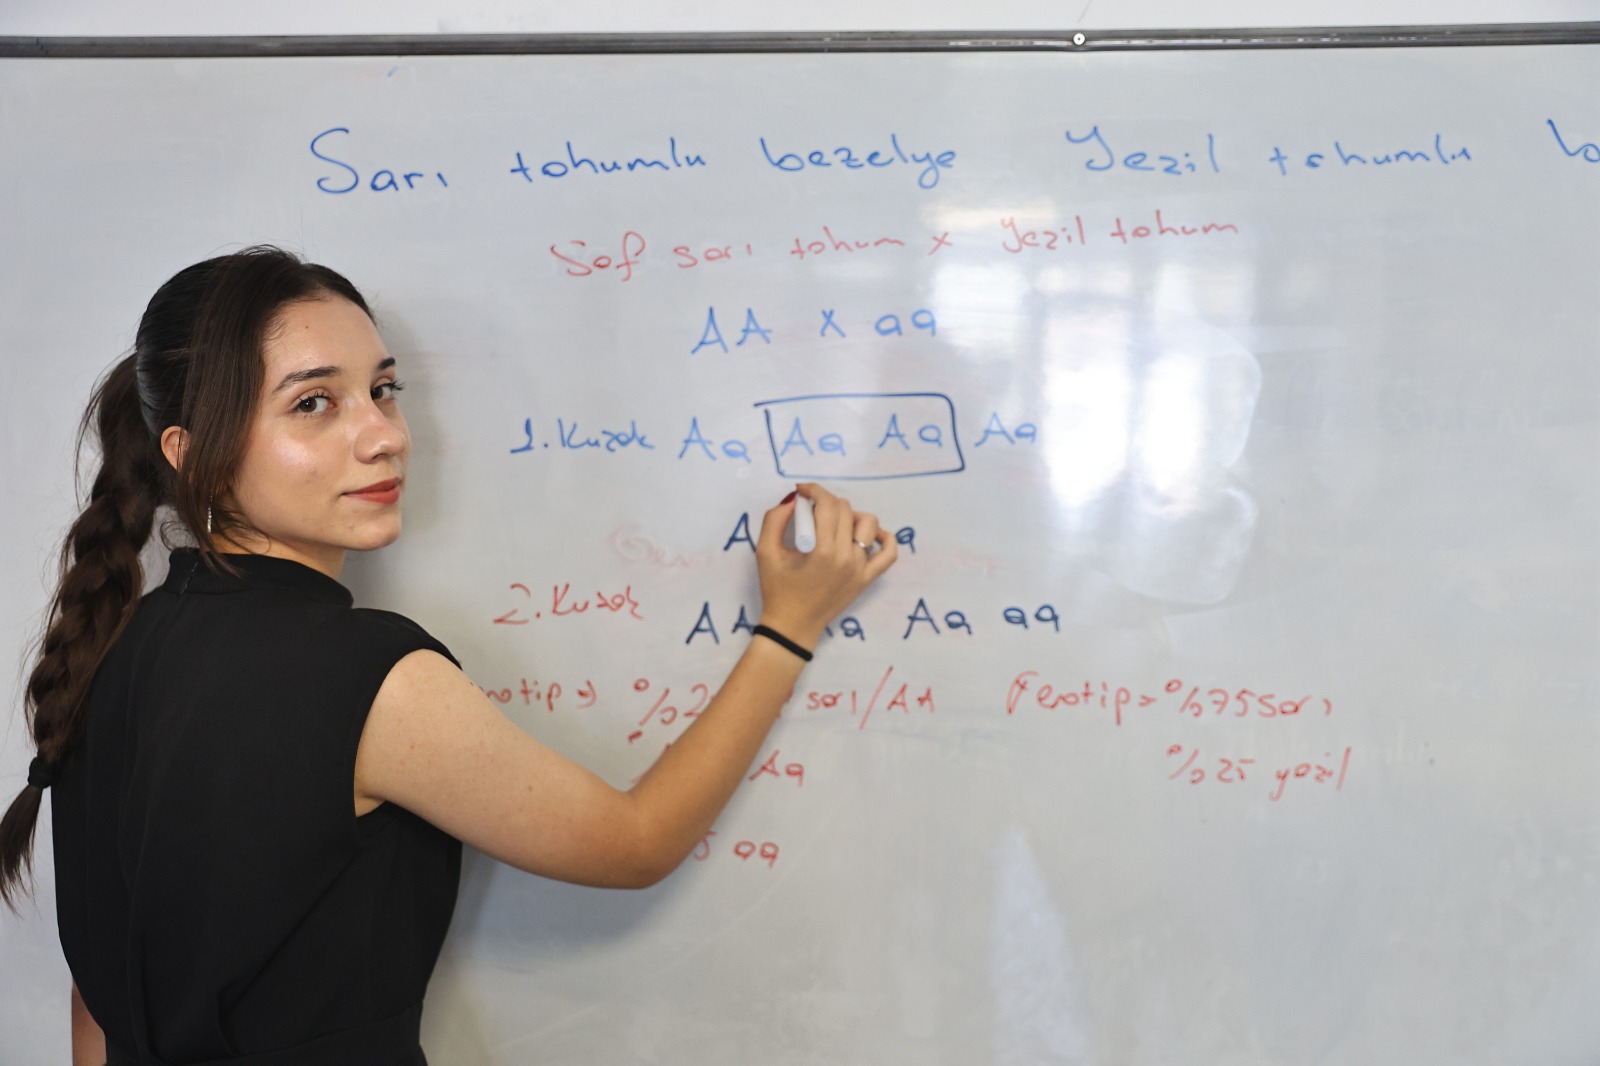 Sarı tohumlu bezelye Yezil tohumlu b
Sof sarı tohum x Yezil tohum
AA x aa
1.Kuzak Aa Aa Aa Aa
A a
2.Kuzak AA a Aa aa
otip → %2 sarı/AA Fenotip → %75 Sarı
Aa %25 yezil
5 aa